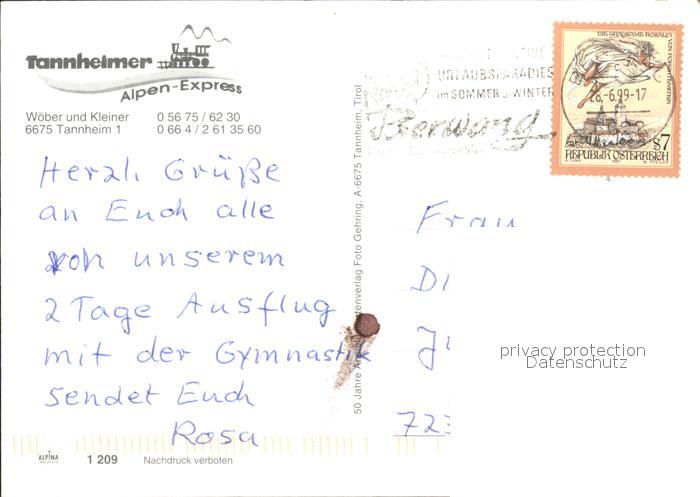 Tannheimer
Alpen-Express
Wöber und Kleiner 0 56 75 / 62 30
6675 Tannheim 1 0 66 4 / 2 61 35 60
Herzl. Grüße
an Euch alle
von unserem
2 Tage Ausflug
mit der Gymnastik
sendet Euch
Rosa
ALPINA
1 209 Nachdruck verboten
50 Jahre Ansichtskartenverlag Foto Gehring, A-6675 Tannheim, Tirol
URLAUBSPARADIES
im SOMMER u. WINTER
Berwang
DIE GRAUSAME ROSALIA VON FORCHTENSTEIN
28.-6.99-17
S7
REPUBLIK ÖSTERREICH
1997
Frau
privacy protection
Datenschutz